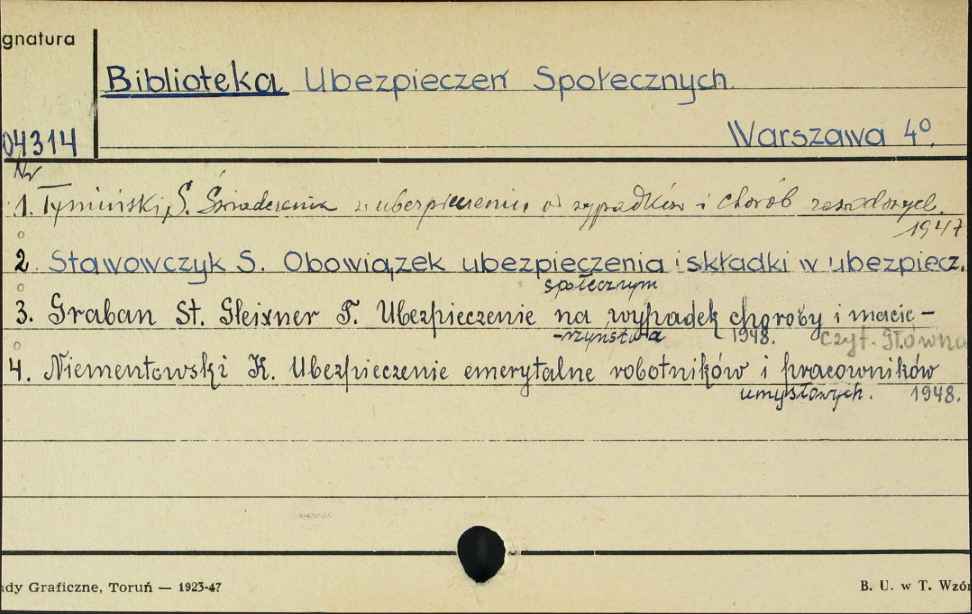 gnatura
Biblioteka Ubezpieczeń Społecznych
04314
Warszawa 4°.
Nr
1. Tymiński, S. Świadczenia z ubezpieczenia od wypadków i chorób zawodowych.
1947
2. Stawowczyk S. Obowiązek ubezpieczenia i składki w ubezpiecz.
społecznym
3. Graban St. Gleixner F. Ubezpieczenie na wypadek choroby i macie-
-rzyństwa 1948. Czyt. Główna
4. Niementowski K. Ubezpieczenie emerytalne robotników i pracowników
umysłowych. 1948.
ady Graficzne, Toruń — 1923-47
B. U. w T. Wzór